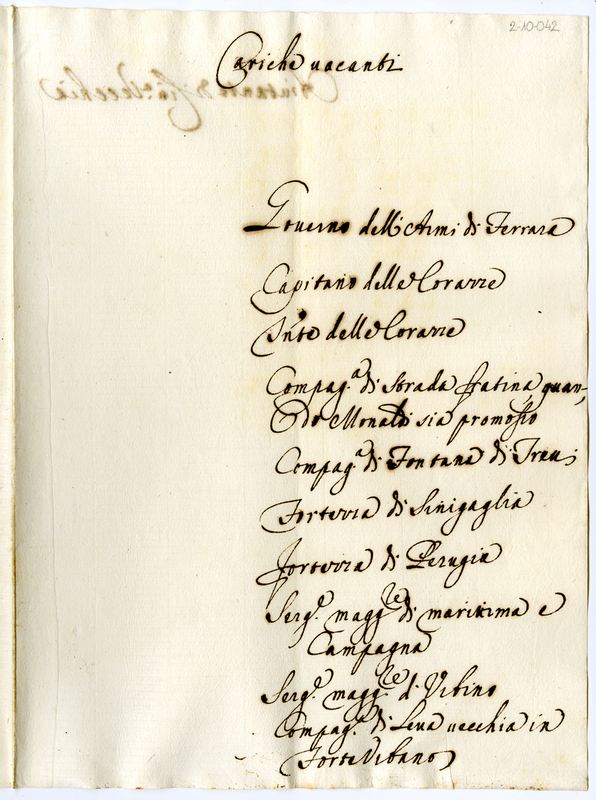 2-10-042
Cariche vacanti
Governo dell'Armi di Ferrara
Capitano delle Corazze
Ten.te delle Corazze
Compag.a di Strada Fratina, quan-
do Monaldi sia promosso
Compag.a di Fontana di Treui
Fortezza di Sinigaglia
Fortezza di Perugia
Serg.e magg.re di marittima e
Campagna
Serg.e magg.re d'Vrbino
Compag.a di Leua uecchia in
Forte Vrbano